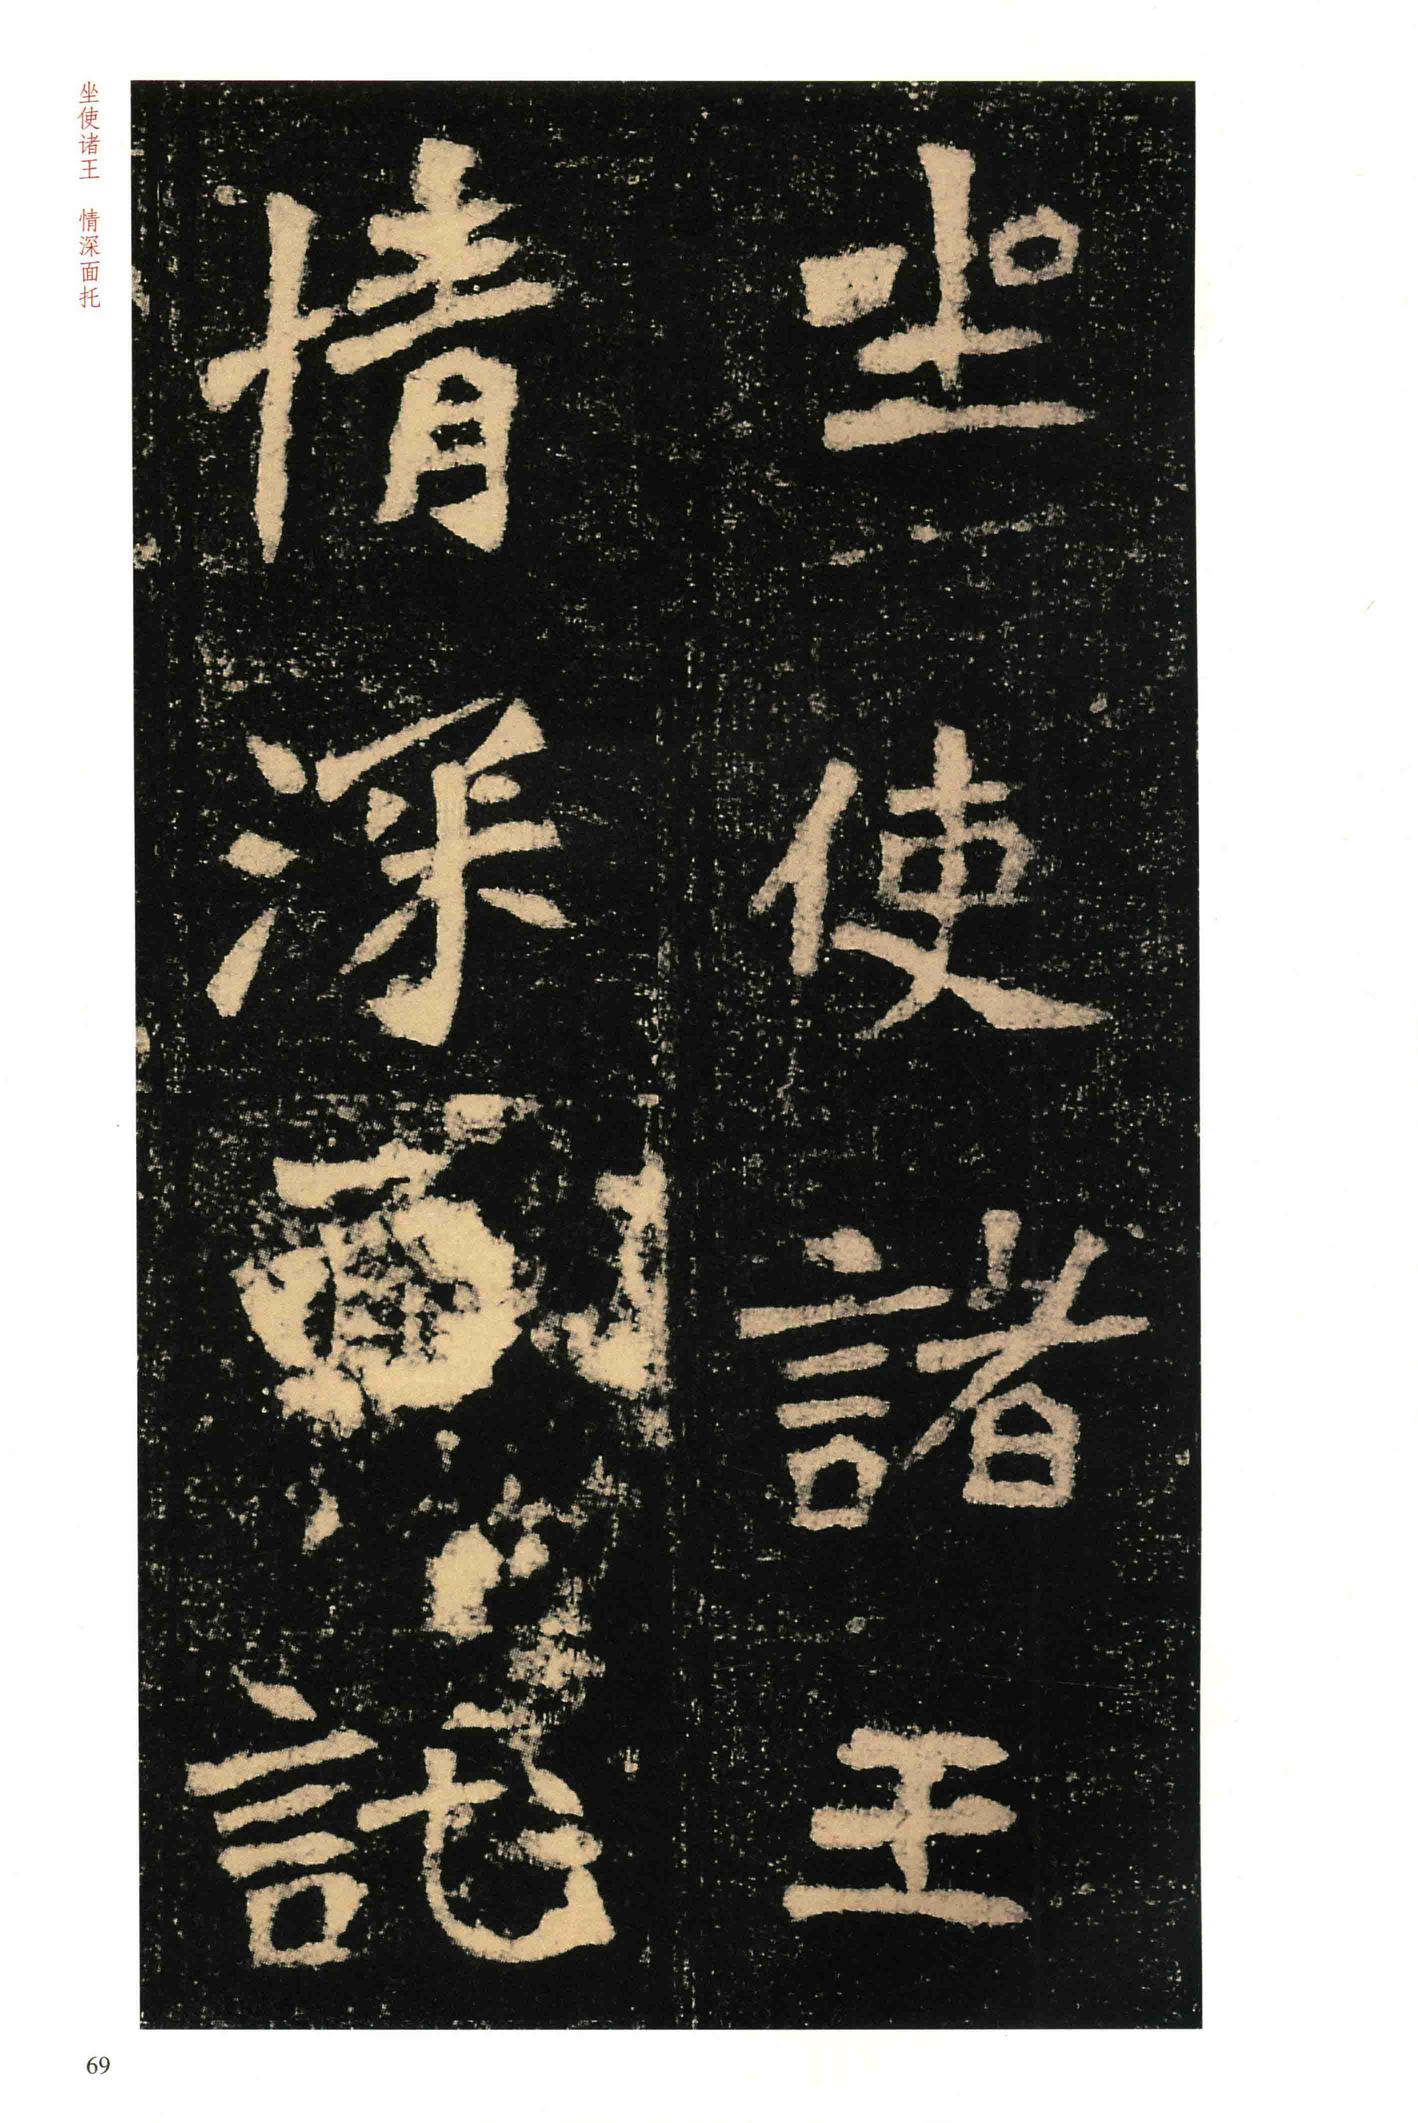 坐使諸王
情深面託
坐使诸王 情深面托
69